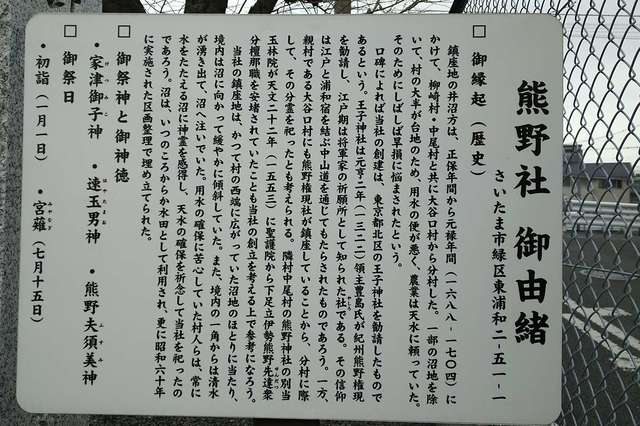 熊野社 御由緒
さいたま市緑区東浦和二-五一-一
□ 御縁起（歴史）
鎮座地の井沼方は、正保年間から元禄年間（一六八八-一七〇四）に
かけて、柳崎村・中尾村と共に大谷口村から分村した。一部の沼地を除
いて、村の大半が台地のため、用水の便が悪く、農業は天水に頼っていた。
そのためにしばしば旱損に悩まされたという。
口碑によれば当社の創建は、東京都北区の王子神社を勧請したもので
あるという。王子神社は元亨二年（一三二二）領主豊島氏が紀州熊野権現
を勧請し、江戸期は将軍家の祈願所として知られた社である。その信仰
は江戸と浦和宿を結ぶ中山道を通じてもたらされたものであろう。一方、
親村である大谷口村にも熊野権現社が鎮座していることから、分村に際
して、その分霊を祀ったとも考えられる。隣村中尾村の熊野神社の別当
玉林院が天文二十二年（一五五三）に聖護院から下足立伊勢熊野先達衆
分檀那職を安堵されていたことも当社の創立を考える上で参考になろう。
当社の鎮座地は、かつて村の西端に広がっていた沼地のほとりに当たり、
境内は沼に向かって緩やかに傾斜していた。また、境内の一角からは清水
が湧き出て、沼へ注いでいた。用水の確保に苦心していた村人らは、常に
水をたたえる沼に神霊を感得し、天水の確保を祈念して当社を祀ったの
であろう。沼は、いつのころからか水田として利用され、更に昭和六十年
に実施された区画整理で埋め立てられた。
□ 御祭神と御神徳
・家津御子神 ・速玉男神 ・熊野夫須美神
□ 御祭日
・初詣（一月一日） ・宮薙（七月十五日）